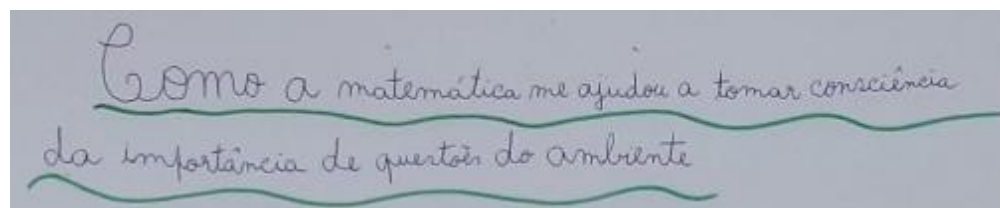 Como a matemática me ajudou a tomar consciência
da importância de questões do ambiente